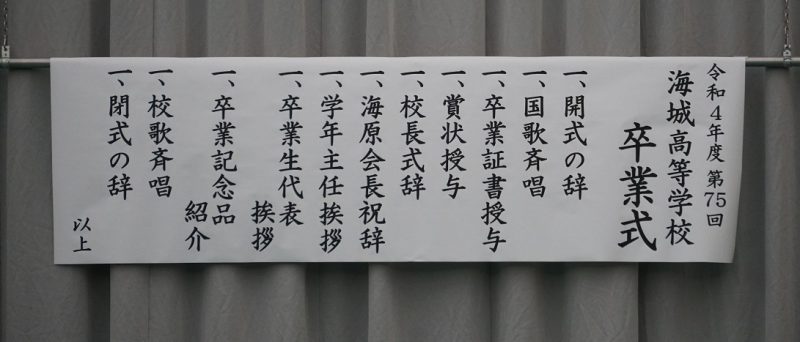 令和4年度 第75回
海城高等学校
卒業式
一、開式の辞
一、国歌斉唱
一、卒業証書授与
一、賞状授与
一、校長式辞
一、海原会長祝辞
一、学年主任挨拶
一、卒業生代表
挨拶
一、卒業記念品
紹介
一、校歌斉唱
一、閉式の辞
以上